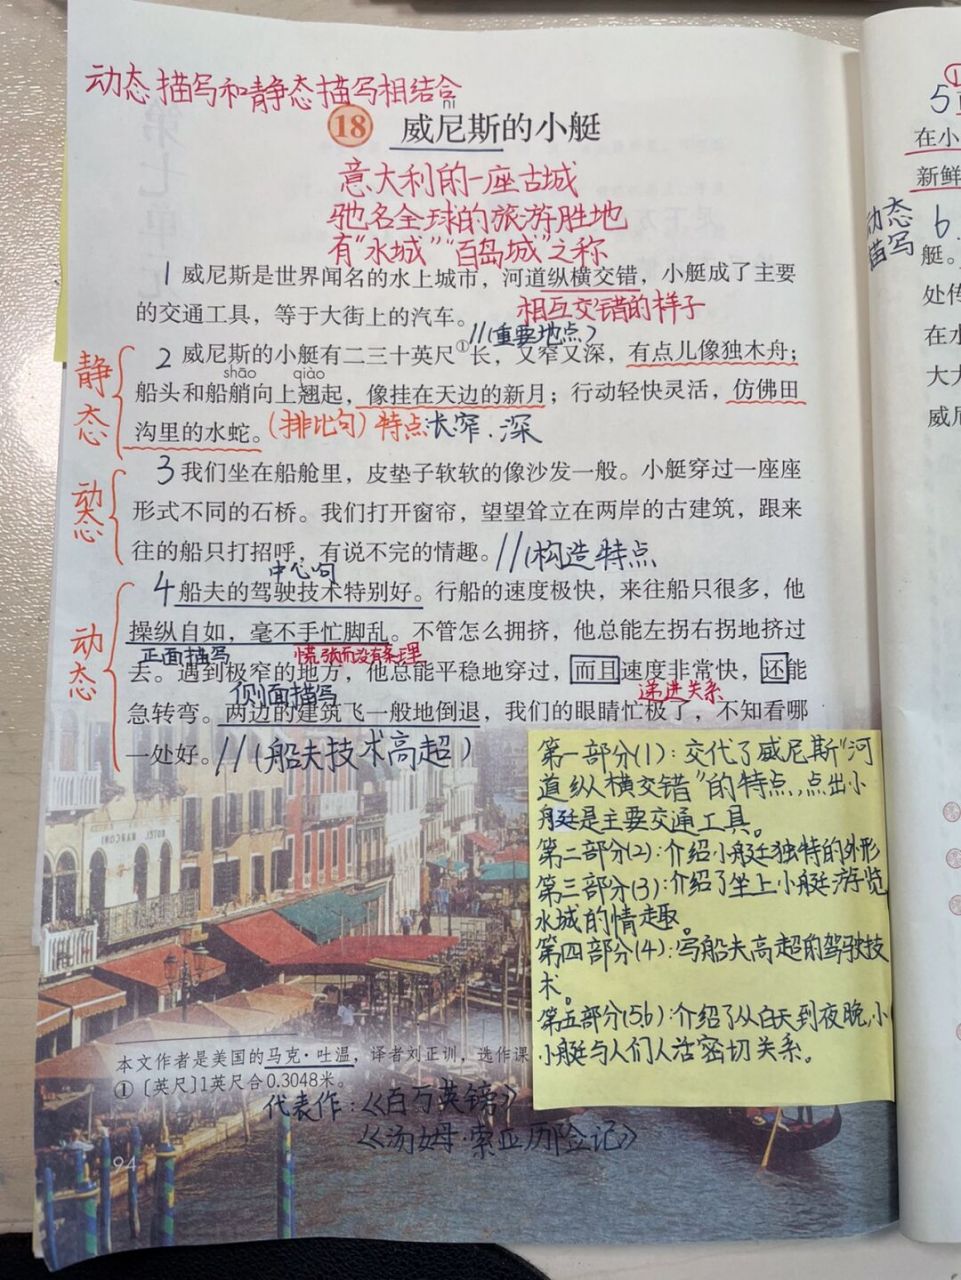 动态描写和静态描写相结合
ní
18 威尼斯的小艇
意大利的一座古城
驰名全球的旅游胜地
有“水城”“百岛城”之称
1 威尼斯是世界闻名的水上城市，河道纵横交错，小艇成了主要
的交通工具，等于大街上的汽车。
相互交错的样子
//(重要地点)
静态
2 威尼斯的小艇有二三十英尺①长，又窄又深，有点儿像独木舟；
shāo qiào
船头和船艄向上翘起，像挂在天边的新月；行动轻快灵活，仿佛田
沟里的水蛇。(排比句) 特点长窄.深
动态
3 我们坐在船舱里，皮垫子软软的像沙发一般。小艇穿过一座座
形式不同的石桥。我们打开窗帘，望望耸立在两岸的古建筑，跟来
往的船只打招呼，有说不完的情趣。//(构造特点
中心句
动态
4 船夫的驾驶技术特别好。行船的速度极快，来往船只很多，他
操纵自如，毫不手忙脚乱。不管怎么拥挤，他总能左拐右拐地挤过
正面描写 慌张而没有条理
去。遇到极窄的地方，他总能平稳地穿过，而且速度非常快，还能
侧面描写 递进关系
急转弯。两边的建筑飞一般地倒退，我们的眼睛忙极了，不知看哪
一处好。//(船夫技术高超)
第一部分(1)：交代了威尼斯“河
道纵横交错”的特点,点出小
艇是主要交通工具。
第二部分(2)：介绍小艇独特的外形
第三部分(3)：介绍了坐上小艇游览
水城的情趣。
第四部分(4)：写船夫高超的驾驶技
术。
第五部分(5.6)：介绍了从白天到夜晚,小
小艇与人们人活密切关系。
本文作者是美国的马克·吐温，译者刘正训，选作课
①〔英尺〕1英尺合0.3048米。
代表作：《百万英镑》
《汤姆·索亚历险记》
94
5
在小
新鲜
动态
描写
6
艇。
处传
在水
大大
威尼